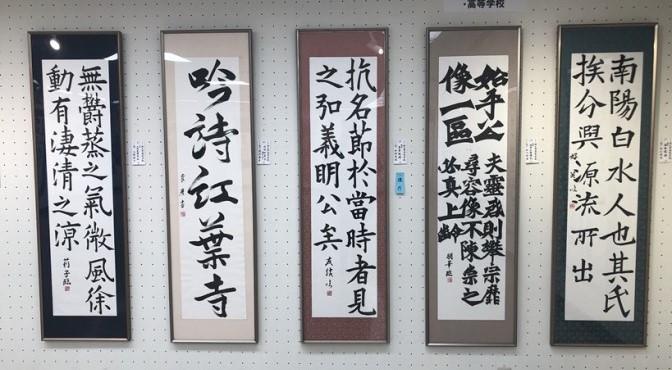 ・高等学校
南陽白水人也其氏
族分興源流所出
始平公
像一區
夫靈啓則攀宗靡
尋容像不陳崇之
必真上齡
抗名節於當時者見
之弘義明公矣
吟詩紅葉寺
無欝蒸之氣微風徐
動有淒清之涼